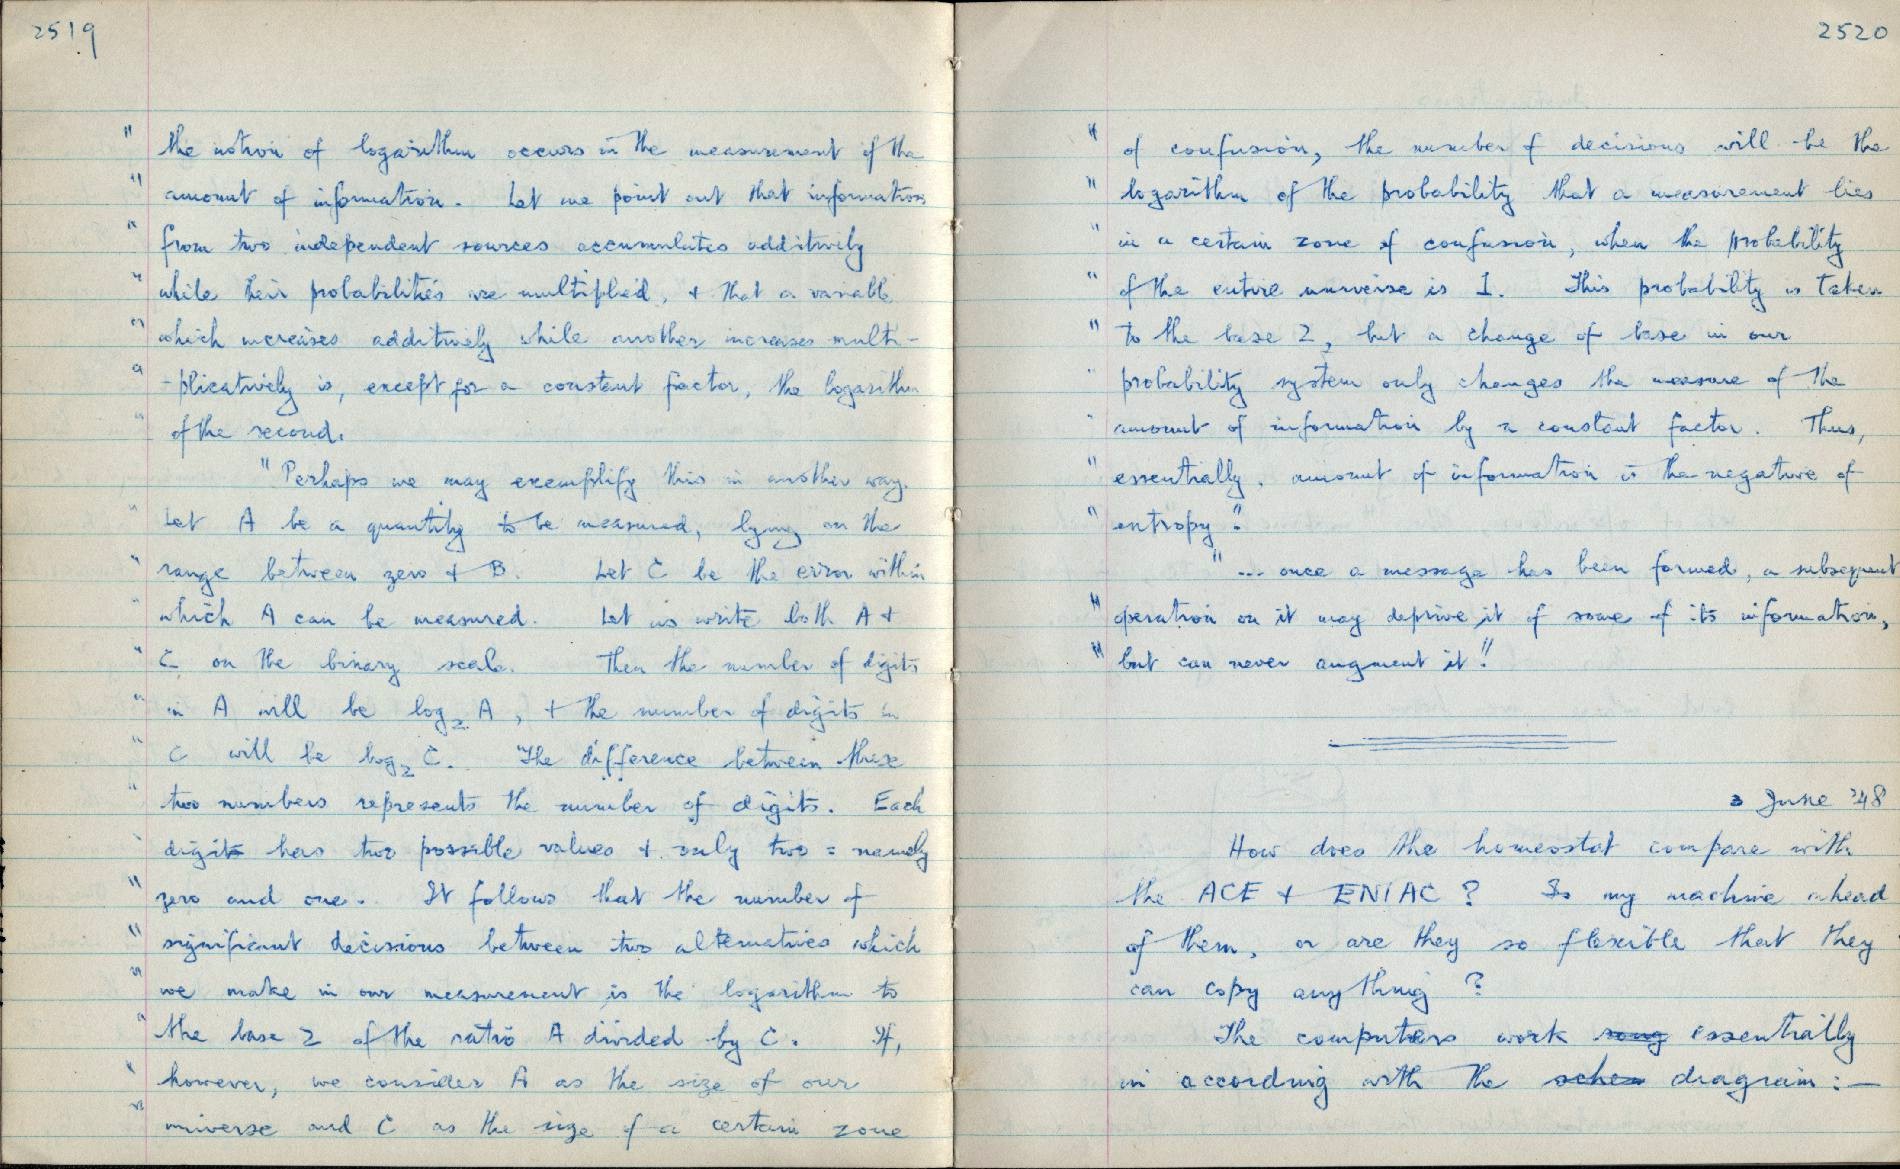 2519
" the notion of logarithm occurs in the measurement of the
" amount of information. Let me point out that information
" from two independent sources accumulates additively
" while their probabilities are multiplied, & that a variable
" which increases additively while another increases multi-
" -plicatively is, except for a constant factor, the logarithm
" of the second.
"Perhaps we may exemplify this in another way.
" Let A be a quantity to be measured, lying on the
" range between zero & B. Let C be the error within
" which A can be measured. Let us write both A &
" C on the binary scale. Then the number of digits
" in A will be log₂ A, & the number of digits in
" C will be log₂ C. The difference between these
" two numbers represents the number of digits. Each
" digit has two possible values & only two = namely
" zero and one. It follows that the number of
" significant decisions between two alternatives which
" we make in our measurement is the logarithm to
" the base 2 of the ratio A divided by C. If,
" however, we consider A as the size of our
" universe and C as the size of a certain zone
2520
" of confusion, the number of decisions will be the
" logarithm of the probability that a measurement lies
" in a certain zone of confusion, when the probability
" of the entire universe is 1. This probability is taken
" to the base 2, but a change of base in our
" probability system only changes the measure of the
" amount of information by a constant factor. Thus,
" essentially, amount of information is the negative of
" entropy".
" ... once a message has been formed, a subsequent
" operation on it may deprive it of some of its information,
" but can never augment it."
3 June '48
How does the homeostat compare with
the ACE & ENIAC? Is my machine ahead
of them, or are they so flexible that they
can copy anything?
The computers work essentially
in according with the diagram:—